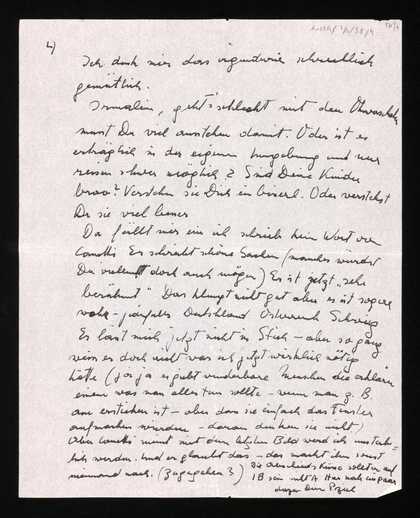 4)
Ich denk mir das irgendwie schrecklich
gemütlich.
Irmalein, geht's schlecht mit den
musst Du viel ausstehen damit. Oder ist es
erträglich in der eigenen Umgebung und nur
reisen schwer möglich? Sind Deine Kinder
brav? Verstehen sie Dich ein bisserl. Oder verstehst
Du sie viel besser
Da fällt mir ein ich schrieb kein Wort von
Er schreibt schöne Sachen (manches würdest
Du vielleicht doch auch mögen) Er ist jetzt "sehr
berühmt" Das klingt nicht gut aber es ist sogar
wahr - Deutschland Österreich Schweiz
Er lässt mich jetzt nicht in Stich - aber so ganz
weiss er doch nicht was ich jetzt wirklich nötig
hätte (ja ja es gibt wunderbare Menschen die erklären
einem was man alles tun sollte - wenn man z. B.
am ersticken ist - aber dass sie einfach das Fenster
aufmachen würden - daran denken sie nicht)
Aber meint mit dem letzten Bild werd ich unsterb-
lich werden. Und er glaubt das - das macht ihm sonst
niemand nach. (Zugegeben?)